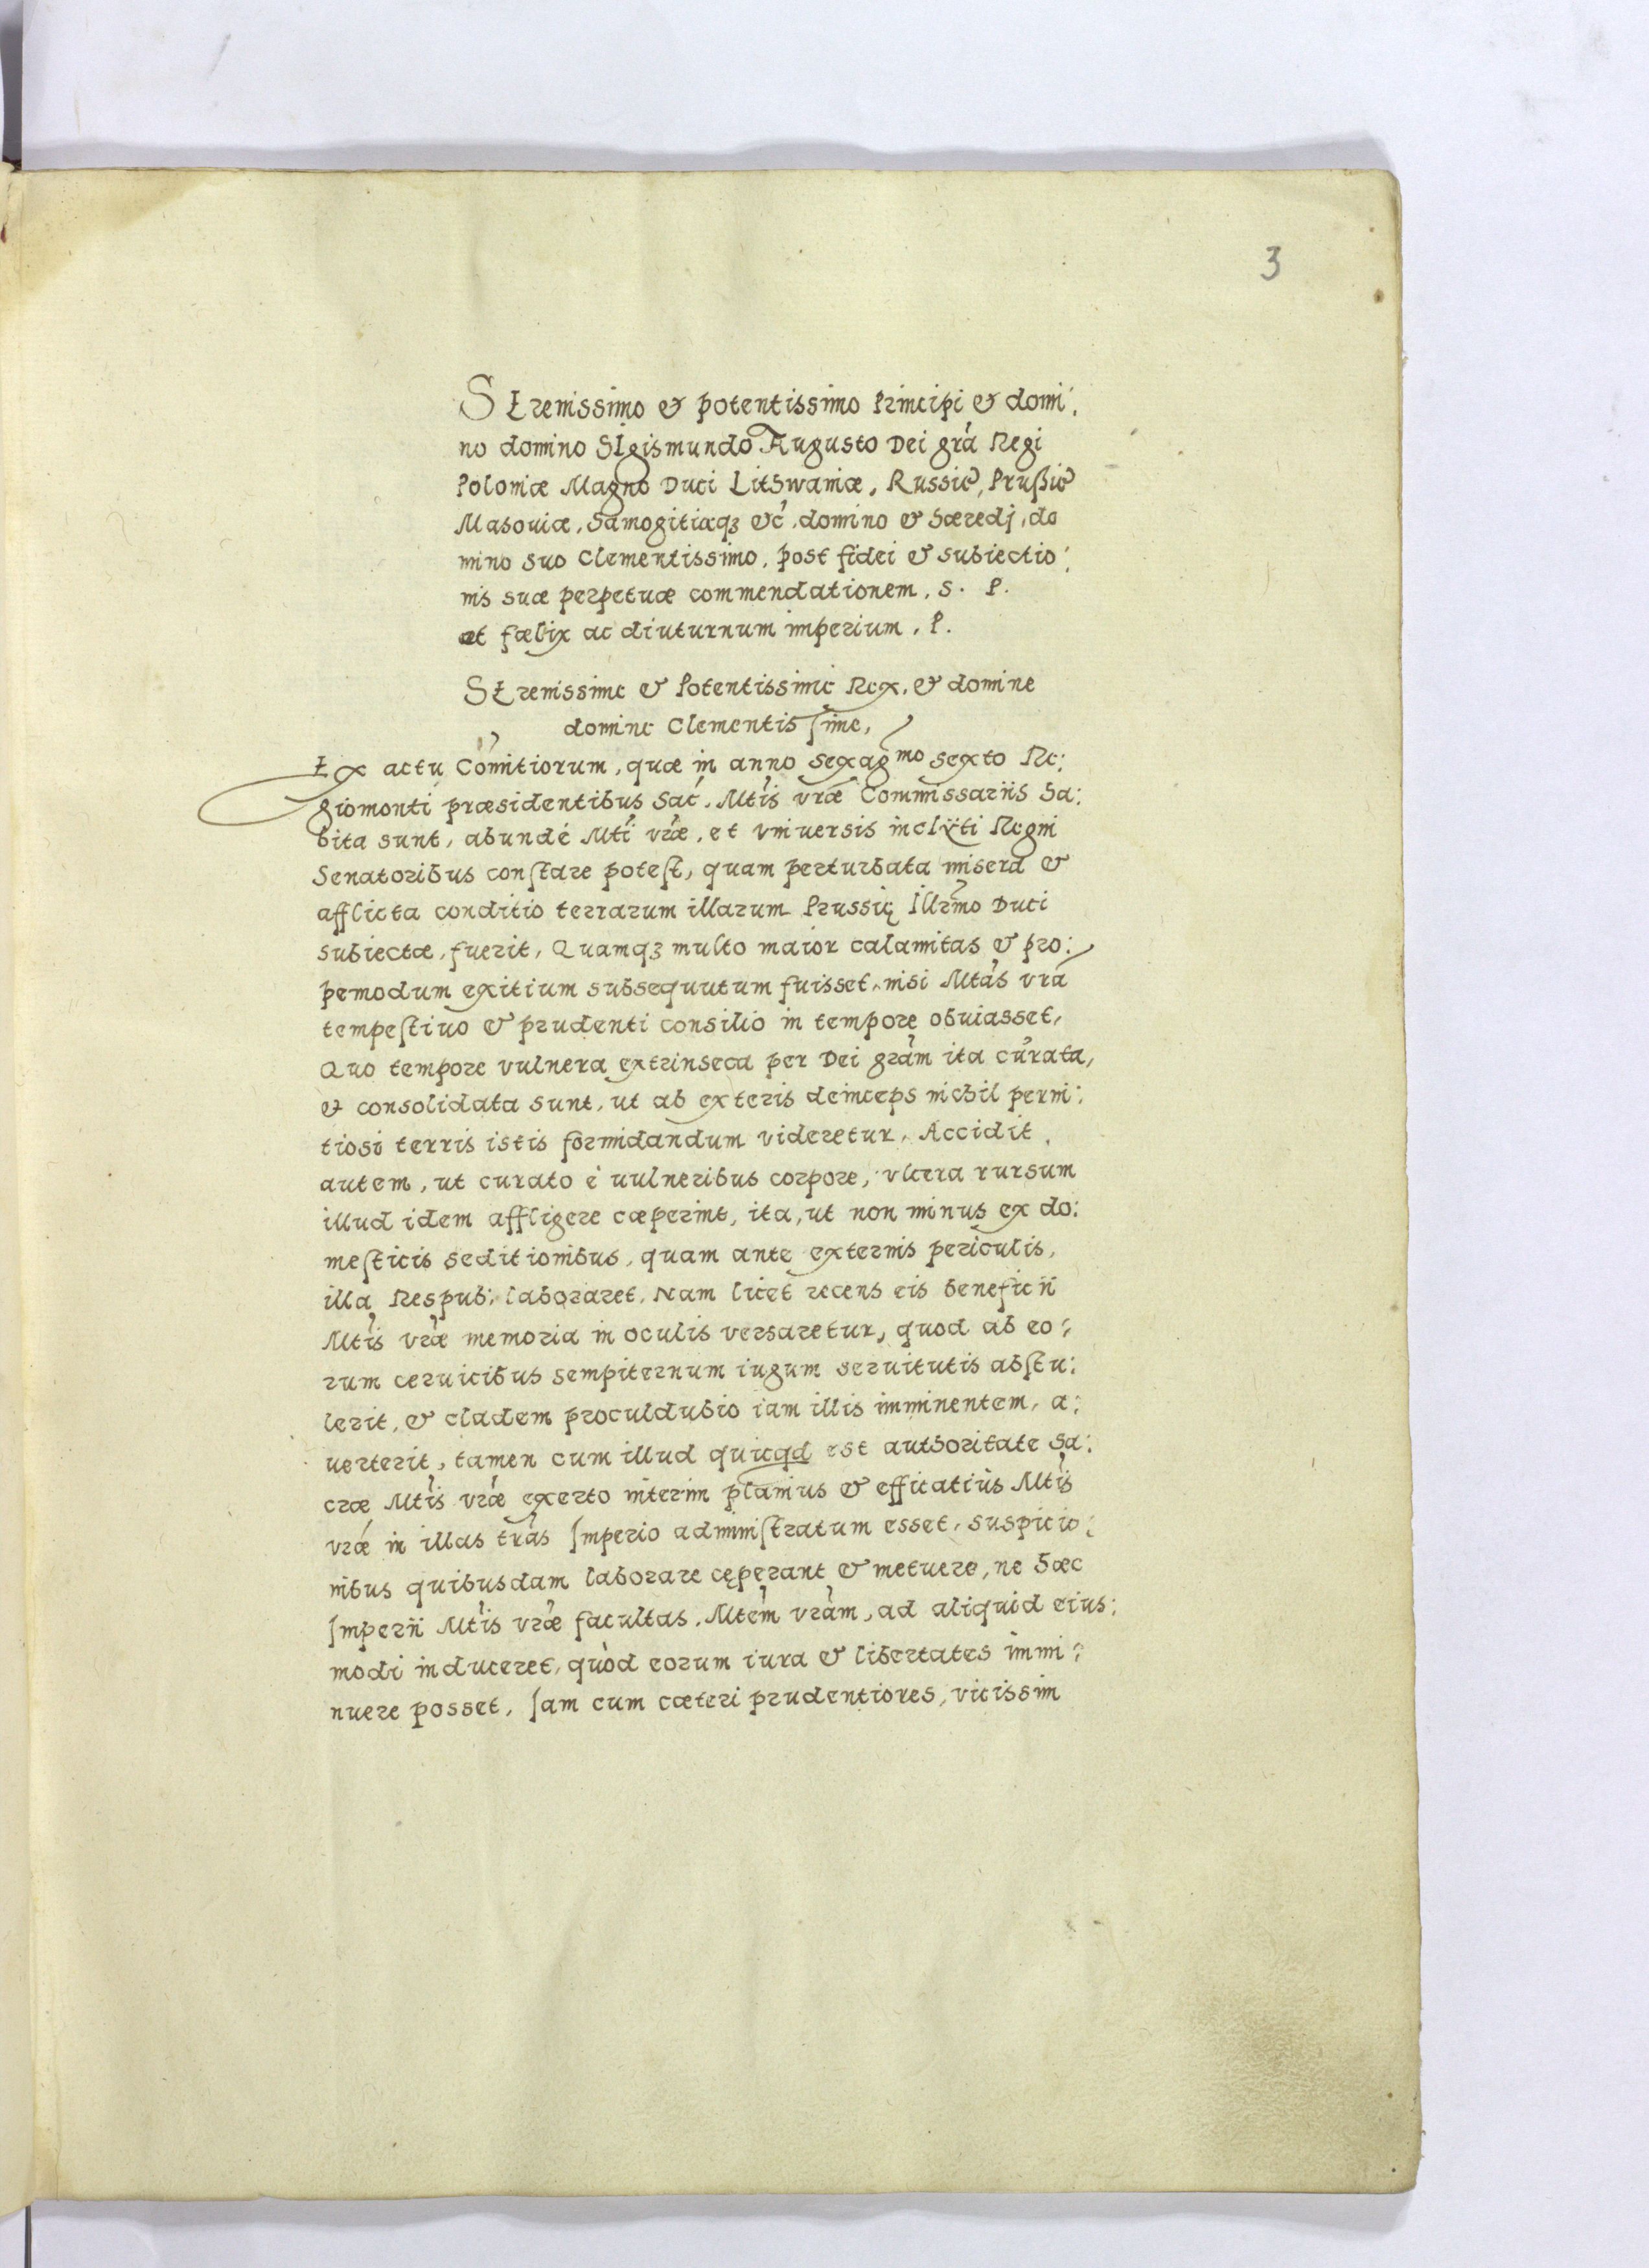 3
SErenissimo & potentissimo Principi & domi:
no domino SIgismundo Augusto Dei gra Regi
Poloniæ Magno Duci Lithwaniæ, Russie, Prußie
Masouiæ, Samogitiæqz &c. domino & hæredj, do
mino suo Clementissimo, post fidei & subiectio:
nis suæ perpetuæ commendationem, S. P.
et fælix ac diuturnum imperium, P.
SErenissime & Potentissime Rex, & domine
domine Clementissime,
Ex actu Comitiorum, quæ in anno sexagmo sexto Re:
giomonti præsidentibus Sac. Mtis vræ Commissariis ha:
bita sunt, abundé Mti vræ, et vniuersis inclÿti Regni
Senatoribus constare potest, quam perturbata misera &
afflicta conditio terrarum illarum Prussię Illrmo Duci
subiectæ, fuerit, Quamqz multo maior calamitas & pro:
pemodum exitium subsequutum fuisset, nisi Mtas vra
tempestiuo & prudenti consilio in tempore obuiasset,
Quo tempore vulnera extrinseca per Dei gram ita curata,
& consolidata sunt, ut ab exteris deinceps nichil perni:
tiosi terris istis formidandum videretur, Accidit
autem, ut curato è uulneribus corpore, vlcera rursum
illud idem affligere cæperint, ita, ut non minus ex do:
mesticis seditionibus, quam ante externis periculis,
illa Respub: laboraret, Nam licet recens eis beneficii
Mtis vræ memoria in oculis versaretur, quod ab eo:
rum ceruicibus sempiternum iugum seruitutis abstu:
lerit, & cladem proculdubio iam illis imminentem, a:
uerterit, tamen cum illud quicqd est authoritate Sa:
cræ Mtis vræ exerto interim planius & efficatius Mtis
vræ in illas tras Imperio administratum esset, suspicio:
nibus quibusdam laborare cęperant & metuere, ne hæc
Imperii Mtis vræ facultas, Mtem vram, ad aliquid eius:
modi induceret, quòd eorum iura & libertates immi:
nuere posset, Iam cum cæteri prudentiores, vicissim